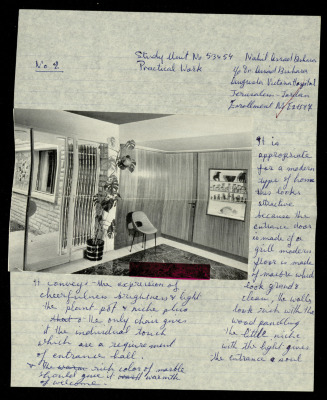 No. 2
Study Unit No 53454
Practical Work
Nahil
Victoria Hospital
Jerusalem - Jordan
Enrollment No
It is
appropriate
for a modern
type of home
has looks
attractive
because the
entrance door
is made of
grill modern
floor is made
of marble which
look grand &
clean, the walls
look rich with the
wood panelling
the little niche
with the light gives
the entrance a soul
It conveys the expression of
cheerfulness brightness & light
the plant pot & niche plus
the only chair gives
it the individual touch
which are a requirement
of entrance hall.
& the rich color of marble
should give it warmth
of welcome.